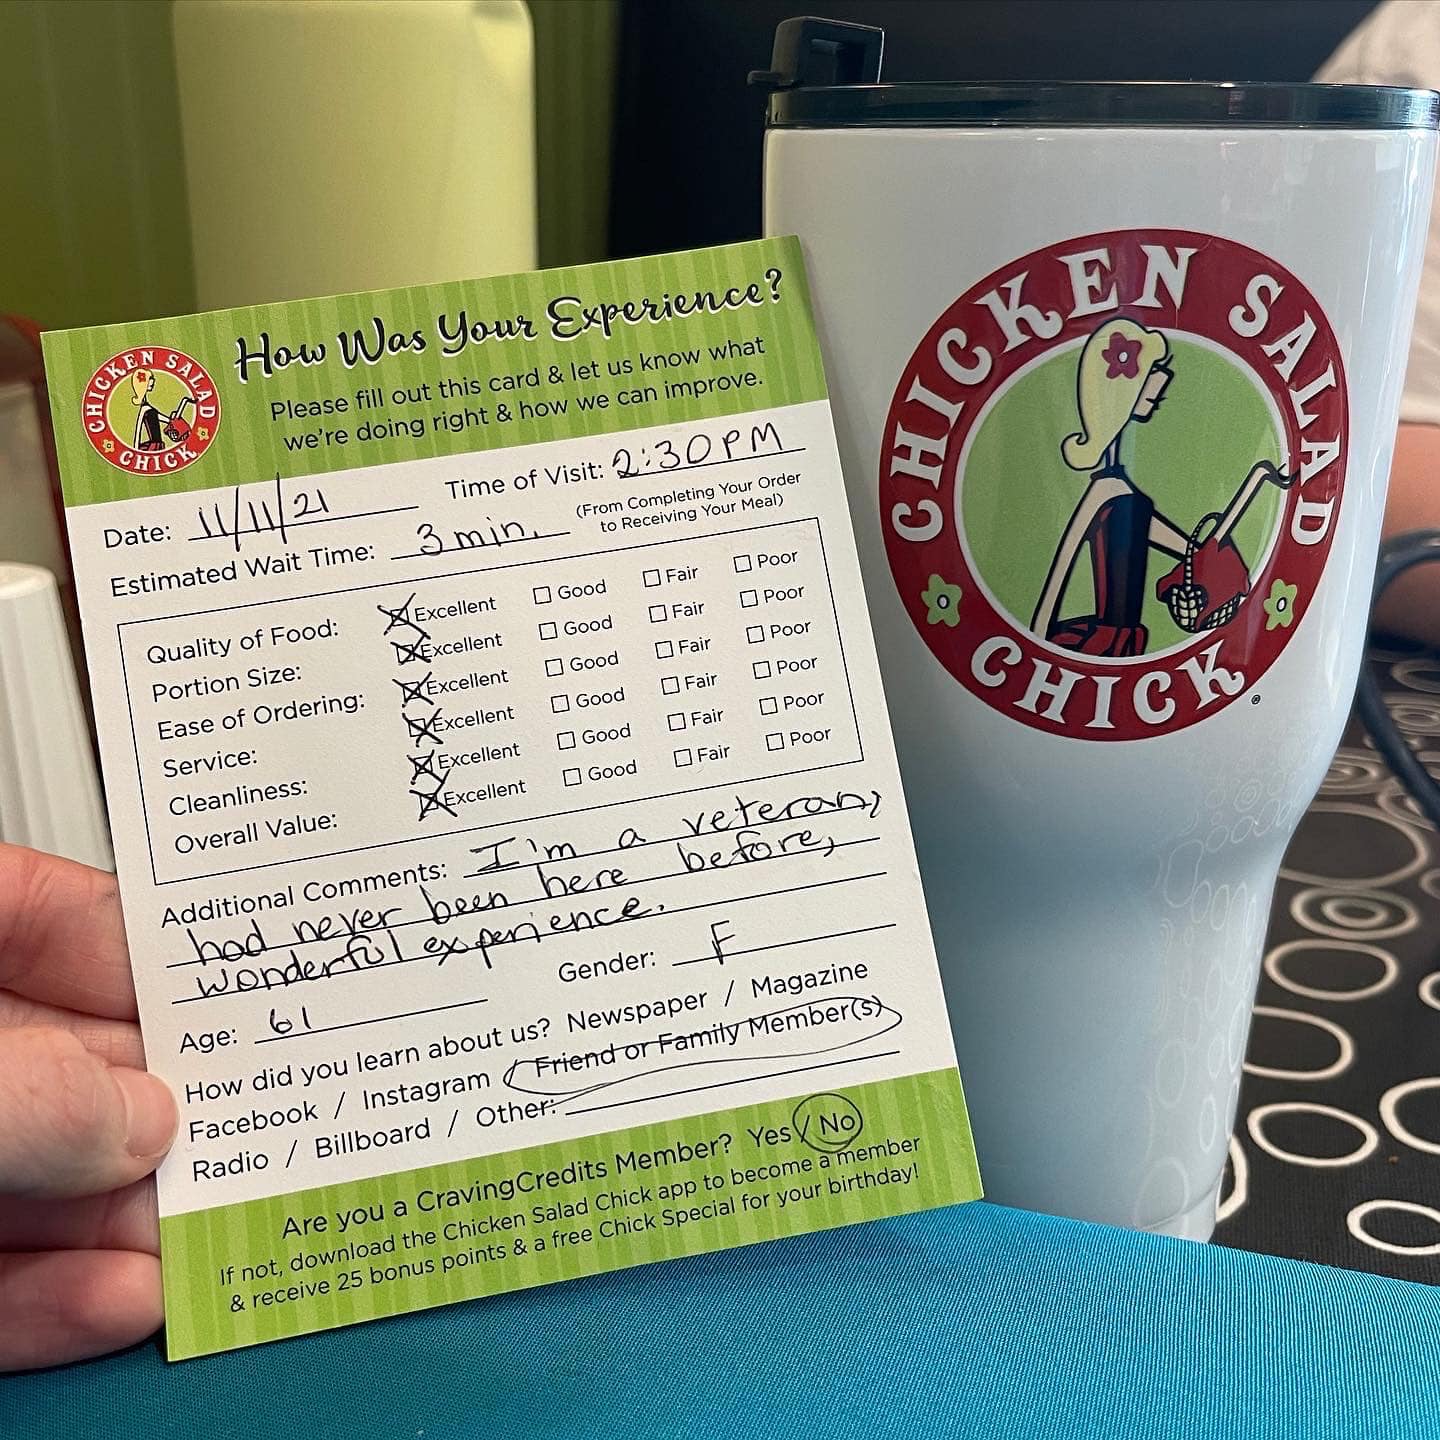 How Was Your Experience?
Please fill out this card & let us know what
we're doing right & how we can improve.
CHICKEN SALAD
CHICK
Date: 11/11/21 Time of Visit: 2:30PM
Estimated Wait Time: 3 min. (From Completing Your Order
to Receiving Your Meal)
Quality of Food: Excellent Good Fair Poor
Portion Size: Excellent Good Fair Poor
Ease of Ordering: Excellent Good Fair Poor
Service: Excellent Good Fair Poor
Cleanliness: Excellent Good Fair Poor
Overall Value: Excellent Good Fair Poor
Additional Comments: I'm a veteran,
had never been here before,
wonderful experience.
Age: 61 Gender: F
How did you learn about us? Newspaper / Magazine
Facebook / Instagram / Friend or Family Member(s)
Radio / Billboard / Other:
Are you a CravingCredits Member? Yes / No
If not, download the Chicken Salad Chick app to become a member
& receive 25 bonus points & a free Chick Special for your birthday!
CHICKEN SALAD
CHICK®